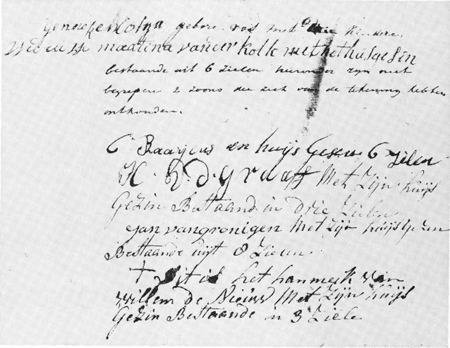 geneefe Kolyn gebore vos met drie kindere.
Wed uwe martina vander kolk met het huisgesin
bestaande uit 6 zielen hieronder zyn niet
begrepen 2 zoons die zich van de tekening hebben
onthouden.
C Baayens en huijs Gesin 6 zielen
H. d. graaff Met zijn huijs
Gezin Bestaand in drie zielen
Jan van gronigen Met zijn huijsgezin
Bestaande uijt 8 zielen
+ dit is het hanmerk van
Willem de Nieuw Met zijn huijs
Gezin Bestaande in 3 Ziele